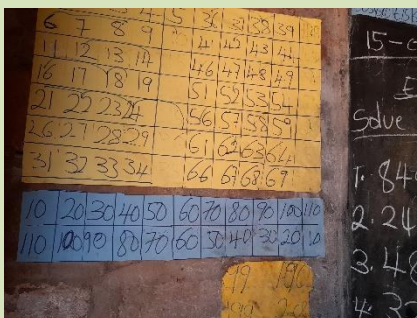 4 5 36 37 38 39
6 7 8 9 41 42 43 44
11 12 13 14 46 47 48 49
16 17 18 19 51 52 53 54
21 22 23 24 56 57 58 59
26 27 28 29 61 62 63 64
31 32 33 34 66 67 68 69
10 20 30 40 50 60 70 80 90 100 110
110 100 90 80 70 60 50 40 30 20 10
19
15-
Solve
1. 84
2. 24
3. 48
4. 3